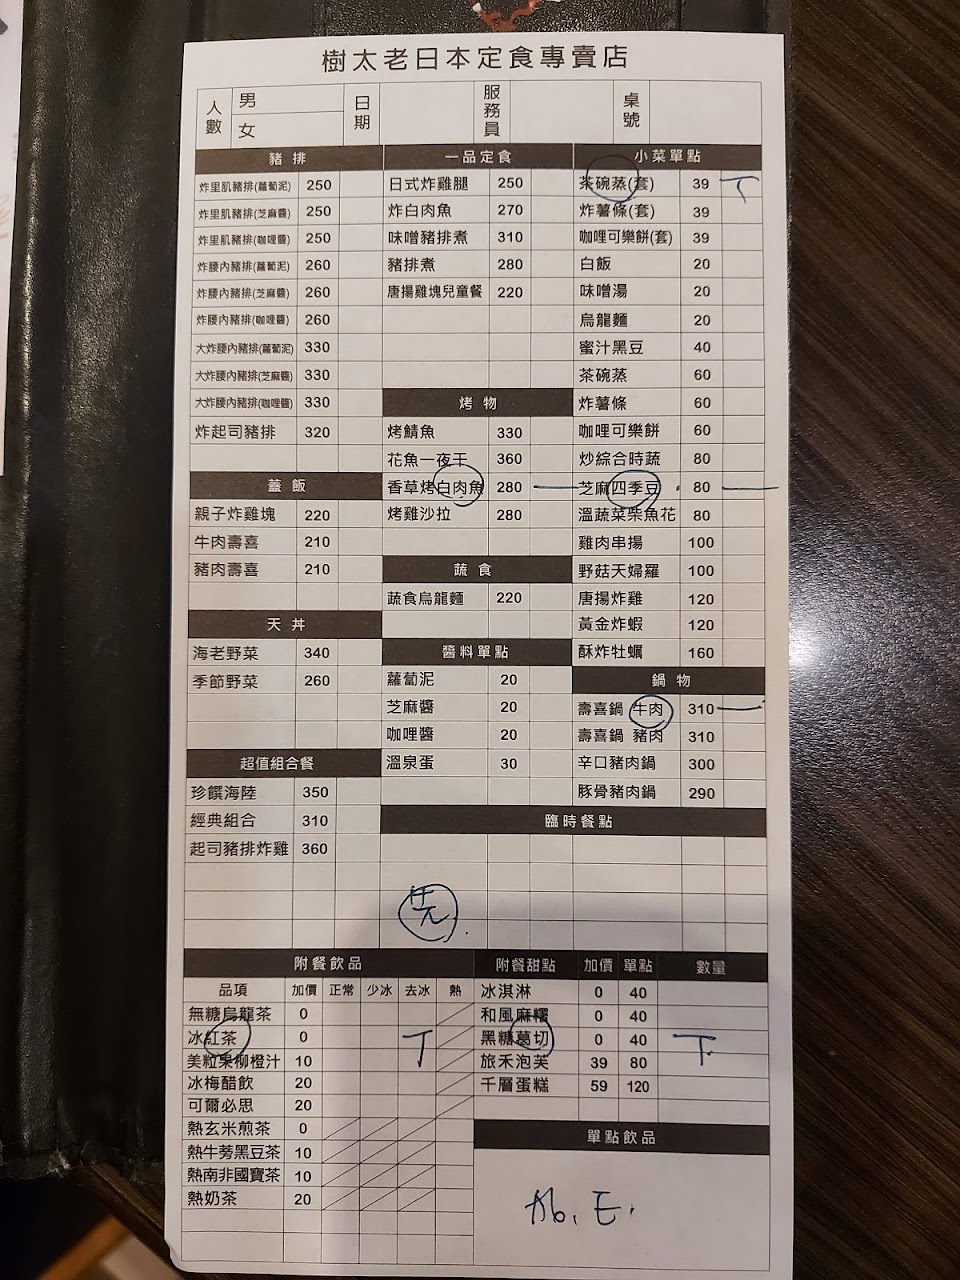 樹太老日本定食專賣店
人數 男 女 日期 服務員 桌號
豬排
炸里肌豬排(蘿蔔泥) 250
炸里肌豬排(芝麻醬) 250
炸里肌豬排(咖哩醬) 250
炸腰內豬排(蘿蔔泥) 260
炸腰內豬排(芝麻醬) 260
炸腰內豬排(咖哩醬) 260
大炸腰內豬排(蘿蔔泥) 330
大炸腰內豬排(芝麻醬) 330
大炸腰內豬排(咖哩醬) 330
炸起司豬排 320
蓋飯
親子炸雞塊 220
牛肉壽喜 210
豬肉壽喜 210
天丼
海老野菜 340
季節野菜 260
超值組合餐
珍饌海陸 350
經典組合 310
起司豬排炸雞 360
一品定食
日式炸雞腿 250
炸白肉魚 270
味噌豬排煮 310
豬排煮 280
唐揚雞塊兒童餐 220
烤物
烤鯖魚 330
花魚一夜干 360
香草烤白肉魚 280 一
烤雞沙拉 280
蔬食
蔬食烏龍麵 220
醬料單點
蘿蔔泥 20
芝麻醬 20
咖哩醬 20
溫泉蛋 30
小菜單點
茶碗蒸(套) 39 T
炸薯條(套) 39
咖哩可樂餅(套) 39
白飯 20
味噌湯 20
烏龍麵 20
蜜汁黑豆 40
茶碗蒸 60
炸薯條 60
咖哩可樂餅 60
炒綜合時蔬 80
芝麻四季豆 80 一
溫蔬菜柴魚花 80
雞肉串揚 100
野菇天婦羅 100
唐揚炸雞 120
黃金炸蝦 120
酥炸牡蠣 160
鍋物
壽喜鍋 牛肉 310 一
壽喜鍋 豬肉 310
辛口豬肉鍋 300
豚骨豬肉鍋 290
臨時餐點
附餐飲品
品項 加價 正常 少冰 去冰 熱
無糖烏龍茶 0
冰紅茶 0 T
美粒果柳橙汁 10
冰梅醋飲 20
可爾必思 20
熱玄米煎茶 0
熱牛蒡黑豆茶 10
熱南非國寶茶 10
熱奶茶 20
附餐甜點 加價 單點 數量
冰淇淋 0 40
和風麻糬 0 40
黑糖葛切 0 40 T
旅禾泡芙 39 80
千層蛋糕 59 120
單點飲品